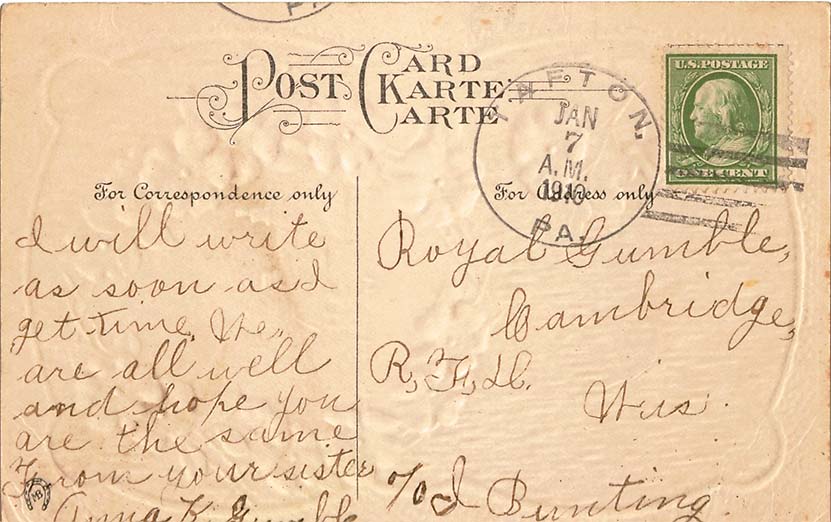 PA
POST CARD
KARTE
CARTE
TAFTON,
JAN
7
A.M.
1910
PA.
U.S. POSTAGE
ONE CENT
For Correspondence only
For Address only
I will write
as soon as I
get time. We
are all well
and hope you
are the same
From your sister
Anna K. Gumble
Royal Gumble,
Cambridge,
R, F, D.
Wis.
c/o J Bunting
MB